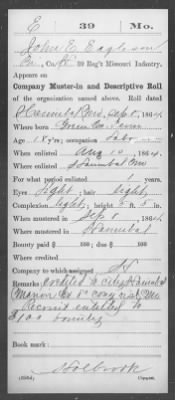 E 39 Mo.
John E. Eagleson
Pri, Co. K 39 Reg't Missouri Infantry.
Appears on
Company Muster-in and Descriptive Roll
of the organization named above. Roll dated
Hannibal Mo, Sep 8, 1864.
Where born Green Co Tenn
Age 18 y'rs; occupation
When enlisted Aug 10, 1864.
Where enlisted Hannibal Mo
For what period enlisted 1 years.
Eyes Light; hair Light
Complexion Light; height 5 ft. 5 in.
When mustered in Sep 8, 1864.
Where mustered in Hannibal
Bounty paid $ 100; due $ 100
Where credited
Company to which assigned K
Remarks: Credited to city Hannibal
Marion Co 8" Cong Dist, Mo
Recruit entitled to
$100 bounty
Book mark:
Holbrook
(356d) Copyist.